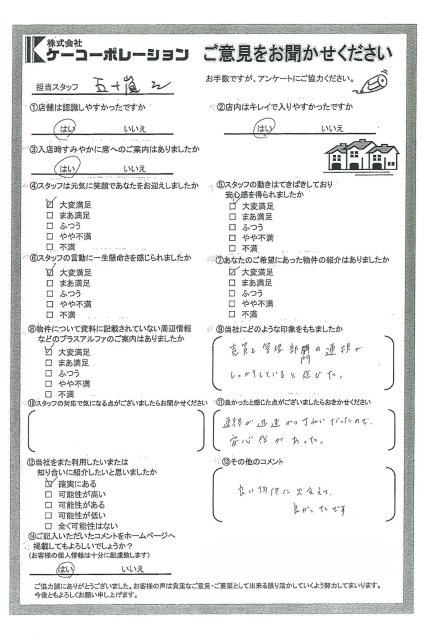 株式会社
ケーコーポレーション
ご意見をお聞かせください
お手数ですが、アンケートにご協力ください。
担当スタッフ 五十嵐
①店舗は認識しやすかったですか
はい いいえ
②店内はキレイで入りやすかったですか
はい いいえ
③入店時すみやかに席へのご案内はありましたか
はい いいえ
④スタッフは元気に笑顔であなたをお迎えしましたか
大変満足
まあ満足
ふつう
やや不満
不満
⑤スタッフの動きはてきぱきしており
安心感を得られましたか
大変満足
まあ満足
ふつう
やや不満
不満
⑥スタッフの言動に一生懸命さを感じられましたか
大変満足
まあ満足
ふつう
やや不満
不満
⑦あなたのご希望にあった物件の紹介はありましたか
大変満足
まあ満足
ふつう
やや不満
不満
⑧物件について資料に記載されていない周辺情報
などのプラスアルファのご案内はありましたか
大変満足
まあ満足
ふつう
やや不満
不満
⑨当社にどのような印象をもちましたか
売買と管理部門の連携が
しっかりしていると感じた。
⑩スタッフの対応で気になる点がございましたらお聞かせください
⑪良かったと感じた点がございましたらおきかせください
連絡が迅速かつていねいだったので、
安心感があった。
⑫当社をまた利用したいまたは
知り合いに紹介したいと思いましたか
確実にある
可能性が高い
可能性がある
可能性が低い
全く可能性はない
⑬その他のコメント
良い物件に出会えて
良かったです
⑭ご記入いただいたコメントをホームページへ
掲載してもよろしいでしょうか?
(お客様の個人情報は十分に配慮致します)
はい いいえ
ご協力誠にありがとうございました。お客様の声は貴重なご意見・ご要望として出来る限り活かしていくよう努力してまいります。
今後ともよろしくお願い申し上げます。